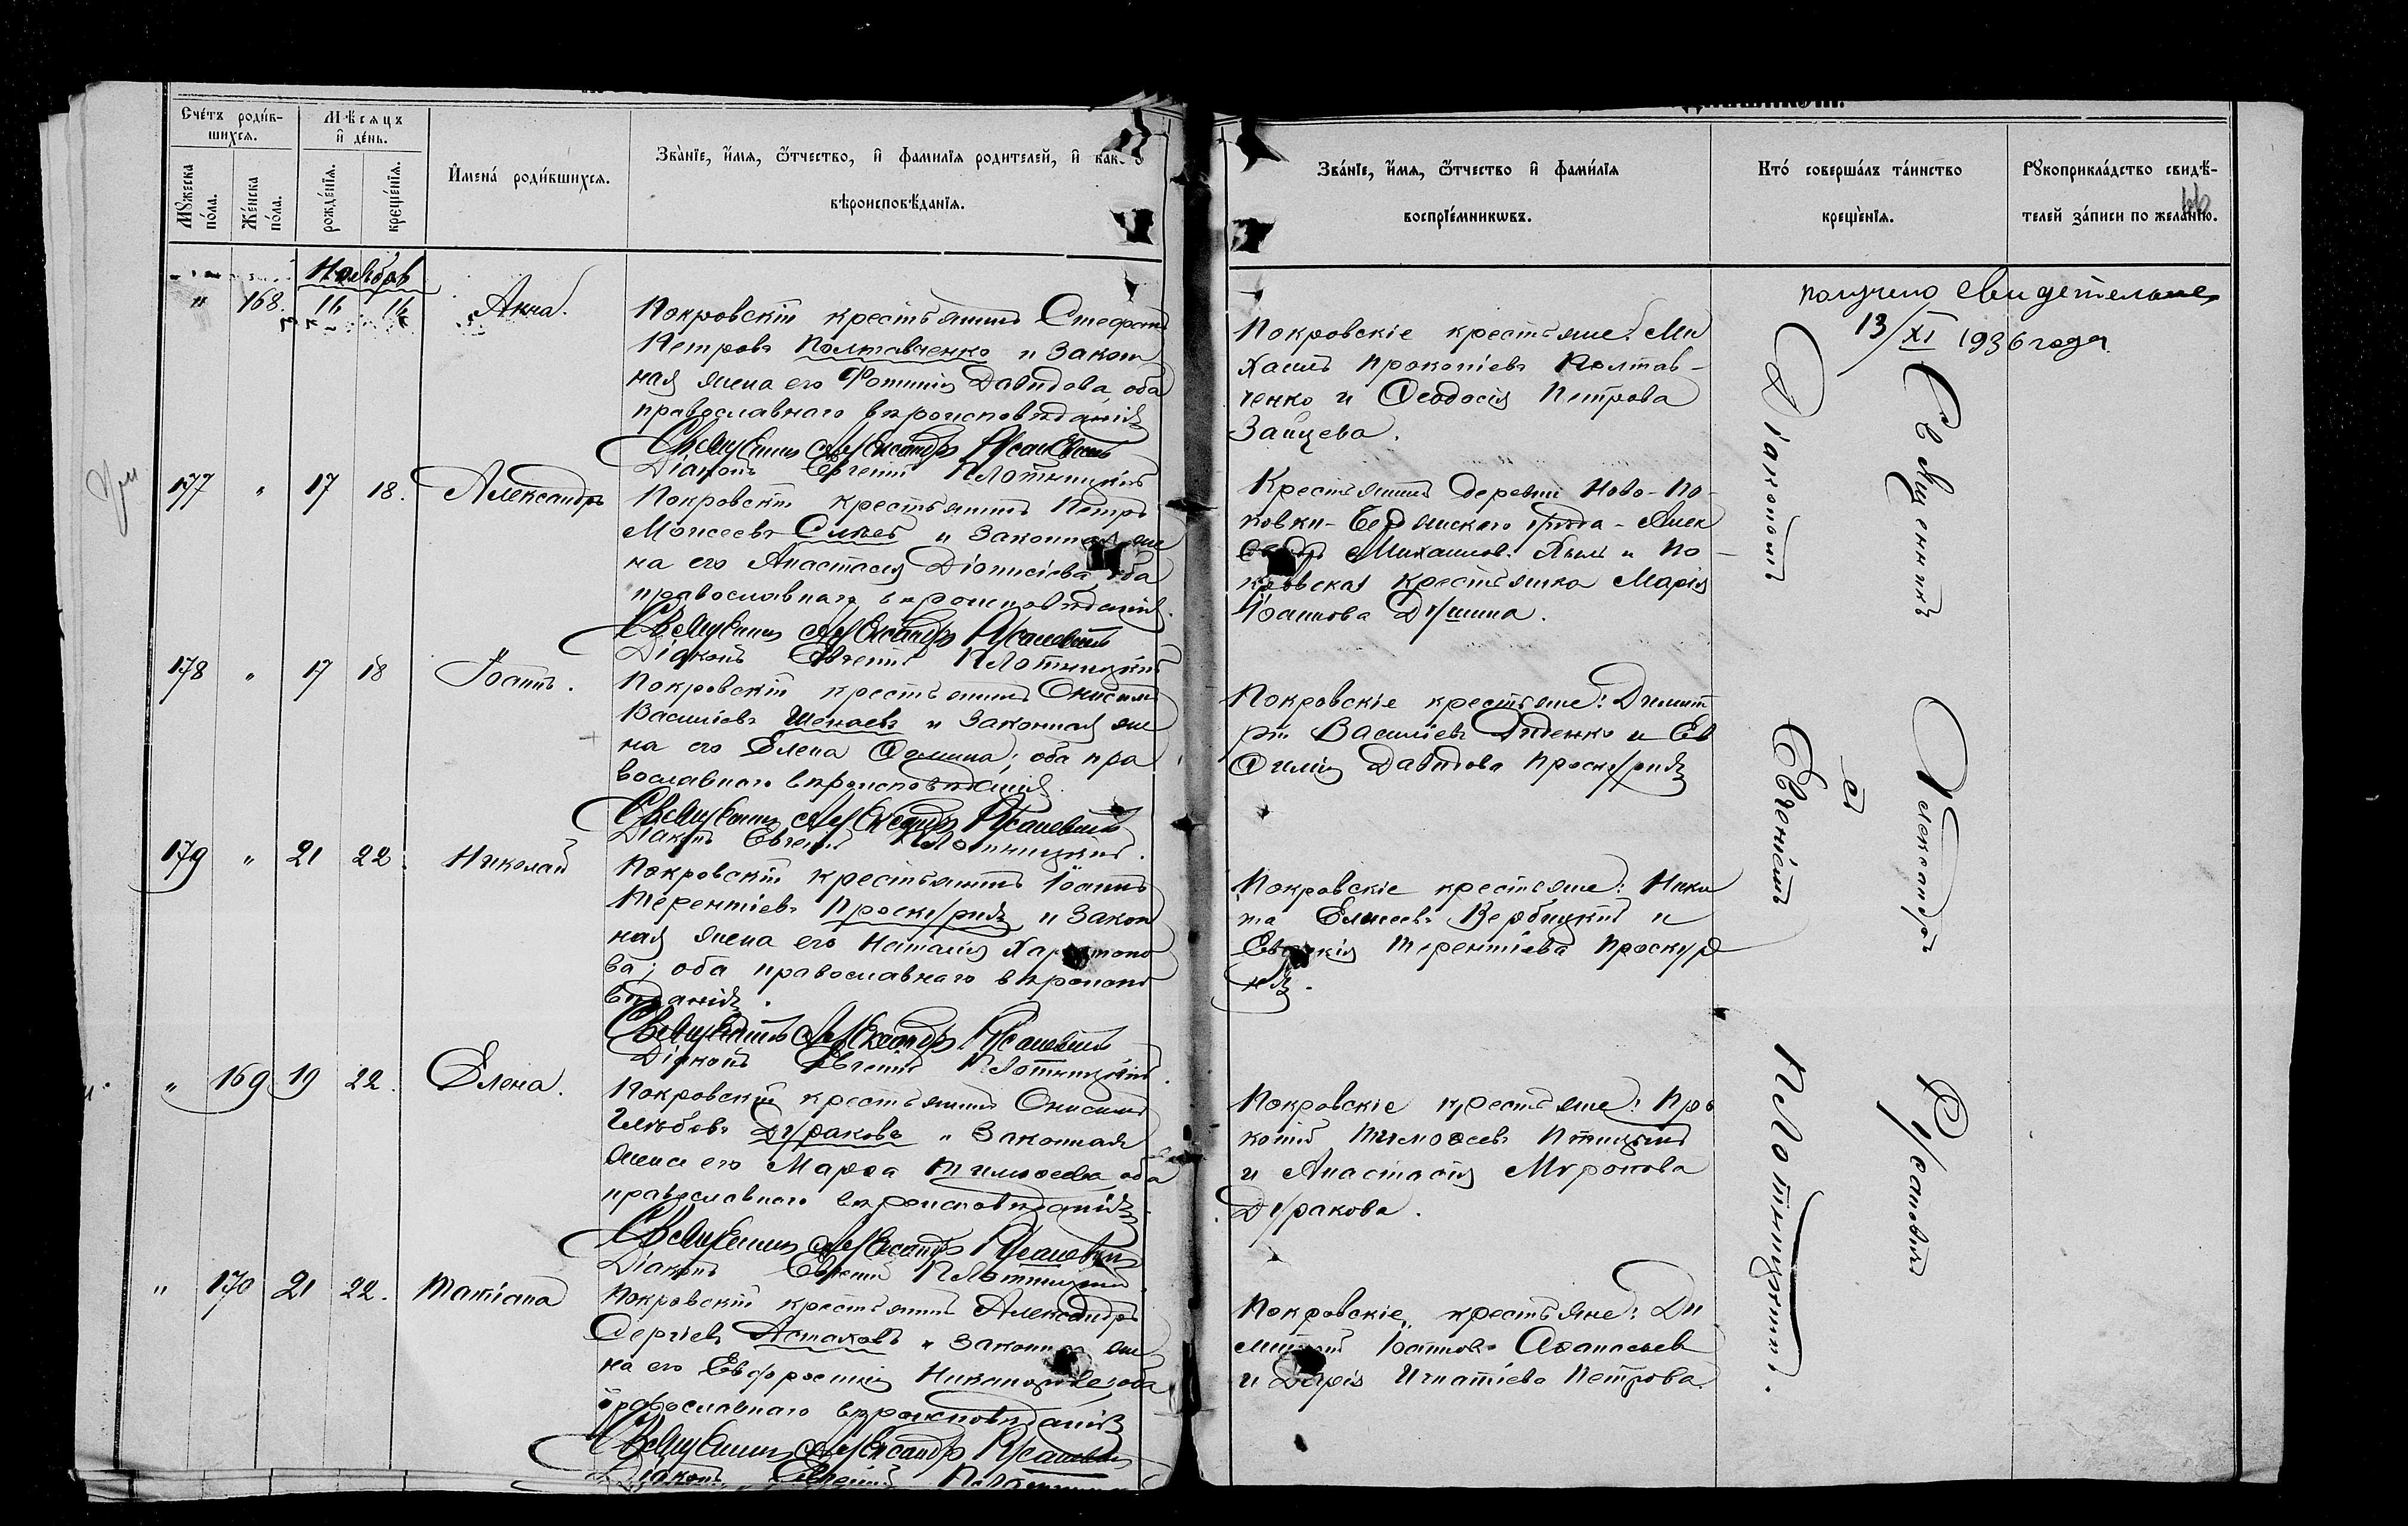 Счетъ родив-
шихся.
Мѣсяцъ
и день.
Мужеска
пола.
Женска
пола.
рожденія.
крещенія.
Имена родившихся.
Званіе, имя, отчество, и фамилія родителей, и как
вѣроисповѣданія.
Ноябрь
" 168. 16 16 Анна.
Покровскій крестьянинъ Стефанъ
Петровъ Полтавченко и закон
ная жена его Фотинія Давидова, оба
православнаго вѣроисповѣданія
Священникъ Александръ Русановичъ
Діаконъ Евгеній Плотницкій
177 " 17 18. Александръ
Покровскій крестьянинъ Петръ
Моисеевъ и законная же
на его Анастасія Діонисіева, оба
православнаго вѣроисповѣданія.
Священникъ Александръ Русановичъ
Діаконъ Евгеній Плотницкій
178 " 17 18 Іоаннъ.
Покровскій крестьянинъ Онисимъ
Василіевъ и законная же
на его Елена Ѳомина; оба пра
вославнаго вѣроисповѣданія.
Священникъ Александръ Русановичъ
Діаконъ Евгеній Плотницкій.
179 " 21 22. Николай
Покровскій крестьянинъ Іоаннъ
Терентіевъ Проскурня и закон
ная жена его Наталія Харитоно
ва; оба православнаго вѣроиспо
вѣданія.
Священникъ Александръ Русановичъ
Діаконъ Евгеній Плотницкій.
" 169 19 22. Елена.
Покровскій крестьянинъ Онисимъ
Глѣбовъ Дураковъ и законная
жена его Марѳа Тимоѳеева, оба
православнаго вѣроисповѣданія.
Священникъ Александръ Русановичъ
Діаконъ Евгеній Плотницкій
" 170 21 22. Татіана
Покровскій крестьянинъ Александръ
Сергіевъ Астаховъ и законная же
на его Евфросинія оба
православнаго вѣроисповѣданія
Священникъ Александръ Русановичъ
Діаконъ Евгеній Плотницкій
Званіе, имя, отчество и фамилія
воспріемниковъ.
Кто совершалъ таинство
крещенія.
Рукоприкладство свидѣ-
телей записи по желанію.
получено свидетельство
13/XI 1936 года.
Покровскіе крестьяне: Ми
хаилъ Прокопіевъ Полтав-
ченко и Ѳеодосія Петрова
Зайцева.
Крестьянинъ деревни Ново-По-
ковки-Бердянскаго уѣзда - Алек
сандръ Михаиловъ и По-
кровская крестьянка Марія
Іоаннова
Покровскіе крестьяне: Димит
рій Василіевъ Дяденко и Ев
ѳимія Давидова Проскурня
Покровскіе крестьяне: Ники
та Елисеевъ Вербицкій и
Евдокія Терентіева Проскур
ня.
Покровскіе крестьяне: Про
копій Тимоѳеевъ Птицынъ
и Анастасія Миронова
Дуракова.
Покровскіе крестьяне: Ди
митрій Іоанновъ Аѳанасьевъ
и Дарія Игнатіева Петрова.
Священникъ Александръ Русановичъ
съ
Діакономъ Евгеніемъ Плотницкимъ.